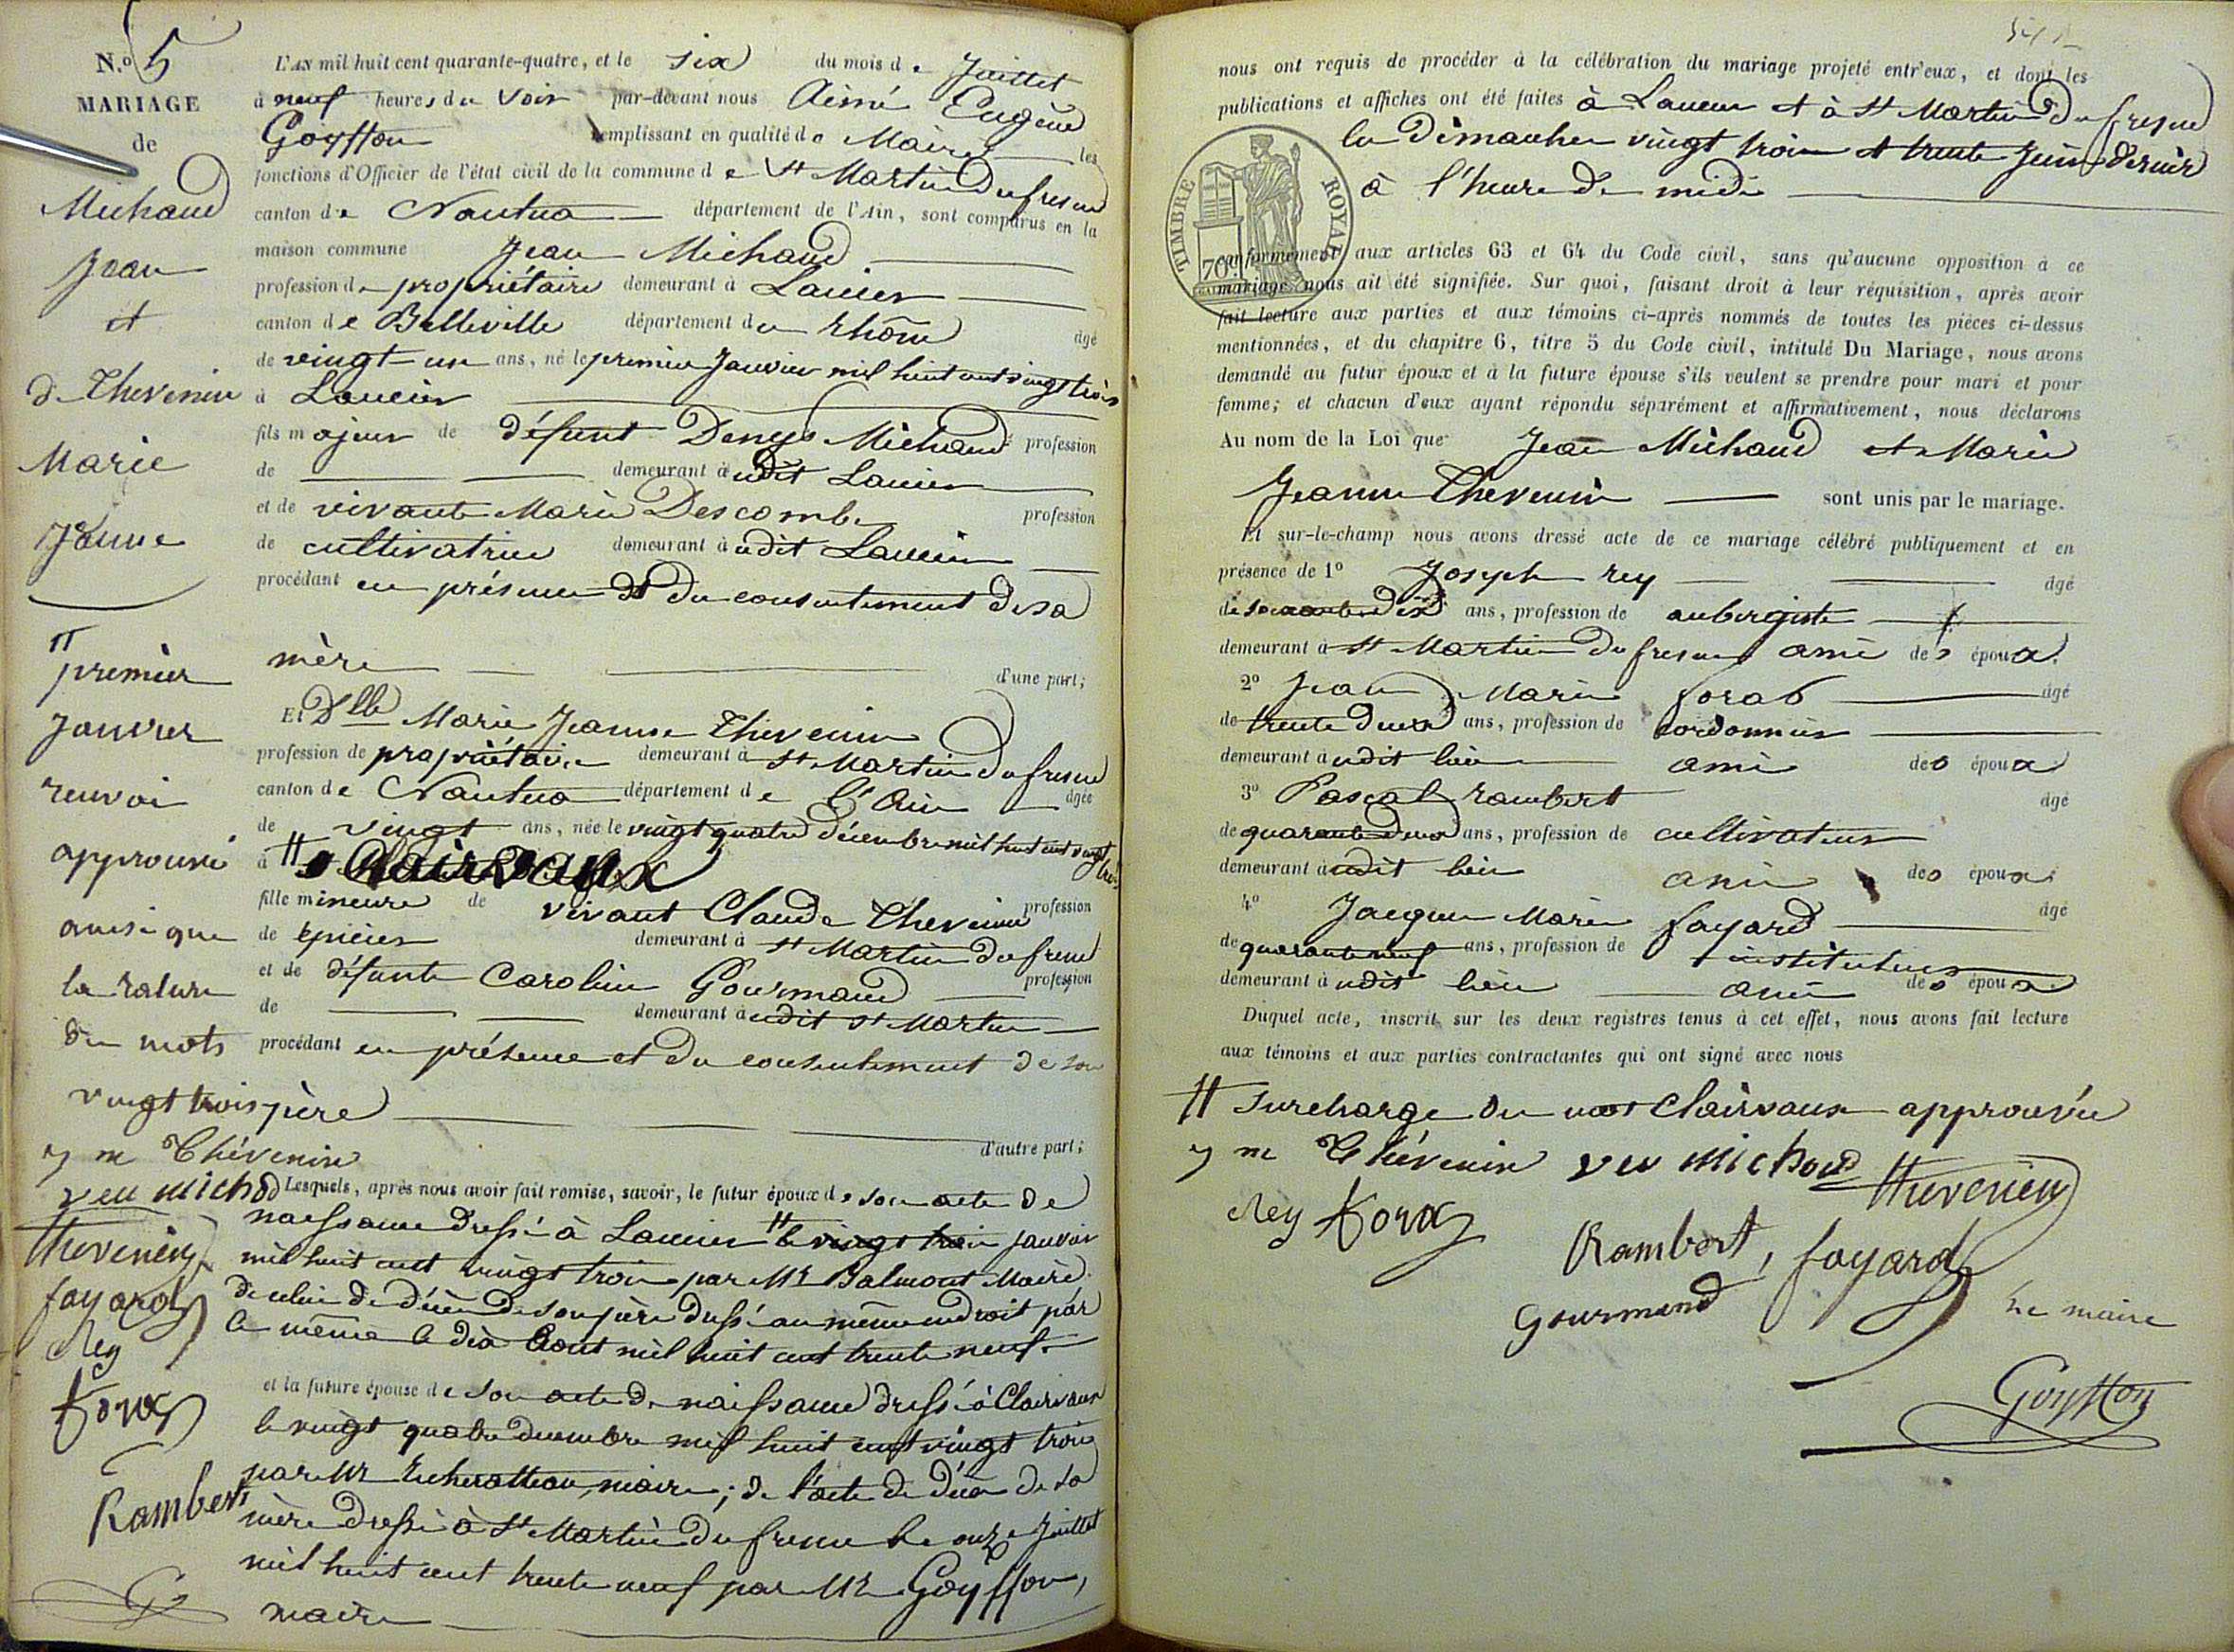 N.º 5
MARIAGE
de
Michaud
Jean
et
de Thevenin
Marie
Jeanne
premier
Janvier
renvoi
approuvé
ainsi que
la rature
du mots
vingt trois
m Thévenin
veu michod
thevenin
fayard
Rey
Rambert
L'AN mil huit cent quarante-quatre, et le six du mois de Juillet
à neuf heures du soir par-devant nous Aimé Eugène
Goyffon remplissant en qualité de Maire les
fonctions d'Officier de l'état civil de la commune de St Martin du fresne
canton de Nantua département de l'Ain, sont comparus en la
maison commune Jean Michaud
profession de propriétaire demeurant à Lancier
canton de Belleville département du Rhône âgé
de vingt-un ans, né le premier Janvier mil huit cent vingt trois
à Lancier
fils majeur de défunt Denys Michaud profession
de demeurant à udit Lancier
et de vivante Marie Descombe profession
de cultivatrice demeurant à udit Lancier
procédant en présence et du consentement de sa
mère d'une part;
Et Dlle Marie Jeanne Thevenin
profession de propriétaire demeurant à St Martin du fresne
canton de Nantua département de l'Ain âgée
de vingt ans, née le vingt quatre décembre mil huit cent vingt trois
à Clairvaux
fille mineure de vivant Claude Thevenin profession
de épicier demeurant à St Martin du fresne
et de défunte Caroline Gourmand profession
de demeurant à udit St Martin
procédant en présence et du consentement de son
père
d'autre part;
Lesquels, après nous avoir fait remise, savoir, le futur époux de son acte de
naissance dressé à Lancier le vingt trois janvier
mil huit cent vingt trois par Mr Balmont Maire
de celui de décès de son père dressé au même endroit par
le même le dix Aout mil huit cent trente neuf
et la future épouse de son acte de naissance dressé à Clairvaux
le vingt quatre decembre mil huit cent vingt trois
par Mr maire; de l'acte de décès de sa
mère dressé à St Martin du fresne le onze Juillet
mil huit cent trente neuf par Mr Goyffon,
maire
nous ont requis de procéder à la célébration du mariage projeté entr'eux, et dont les
publications et affiches ont été faites à Lancier et à St Martin du fresne
les Dimanches vingt trois et trente Juin dernier
à l'heure de midi
TIMBRE ROYAL
70c
conformément aux articles 63 et 64 du Code civil, sans qu'aucune opposition à ce
mariage nous ait été signifiée. Sur quoi, faisant droit à leur réquisition, après avoir
fait lecture aux parties et aux témoins ci-après nommés de toutes les pièces ci-dessus
mentionnées, et du chapitre 6, titre 5 du Code civil, intitulé Du Mariage, nous avons
demandé au futur époux et à la future épouse s'ils veulent se prendre pour mari et pour
femme; et chacun d'eux ayant répondu séparément et affirmativement, nous déclarons
Au nom de la Loi que Jean Michaud et Marie
Jeanne Thevenin sont unis par le mariage.
Et sur-le-champ nous avons dressé acte de ce mariage célébré publiquement et en
présence de 1º Joseph rey âgé
de soixante dix ans, profession de aubergiste
demeurant à St Martin du fresne ami des époux.
2º Jean Marie forax âgé
de trente deux ans, profession de cordonnier
demeurant à udit lieu ami des époux
3º Pascal rambert âgé
de quarante deux ans, profession de cultivateur
demeurant à udit lieu ami des époux
4º Jacques Marie fayard âgé
de quarante neuf ans, profession de instituteur
demeurant à udit lieu ami des époux
Duquel acte, inscrit sur les deux registres tenus à cet effet, nous avons fait lecture
aux témoins et aux parties contractantes qui ont signé avec nous
Surcharge du mot Clairvaux approuvée
m Thévenin veu michod thevenin
Rey forax
Rambert, fayard
gourmand Le maire
Goyffon